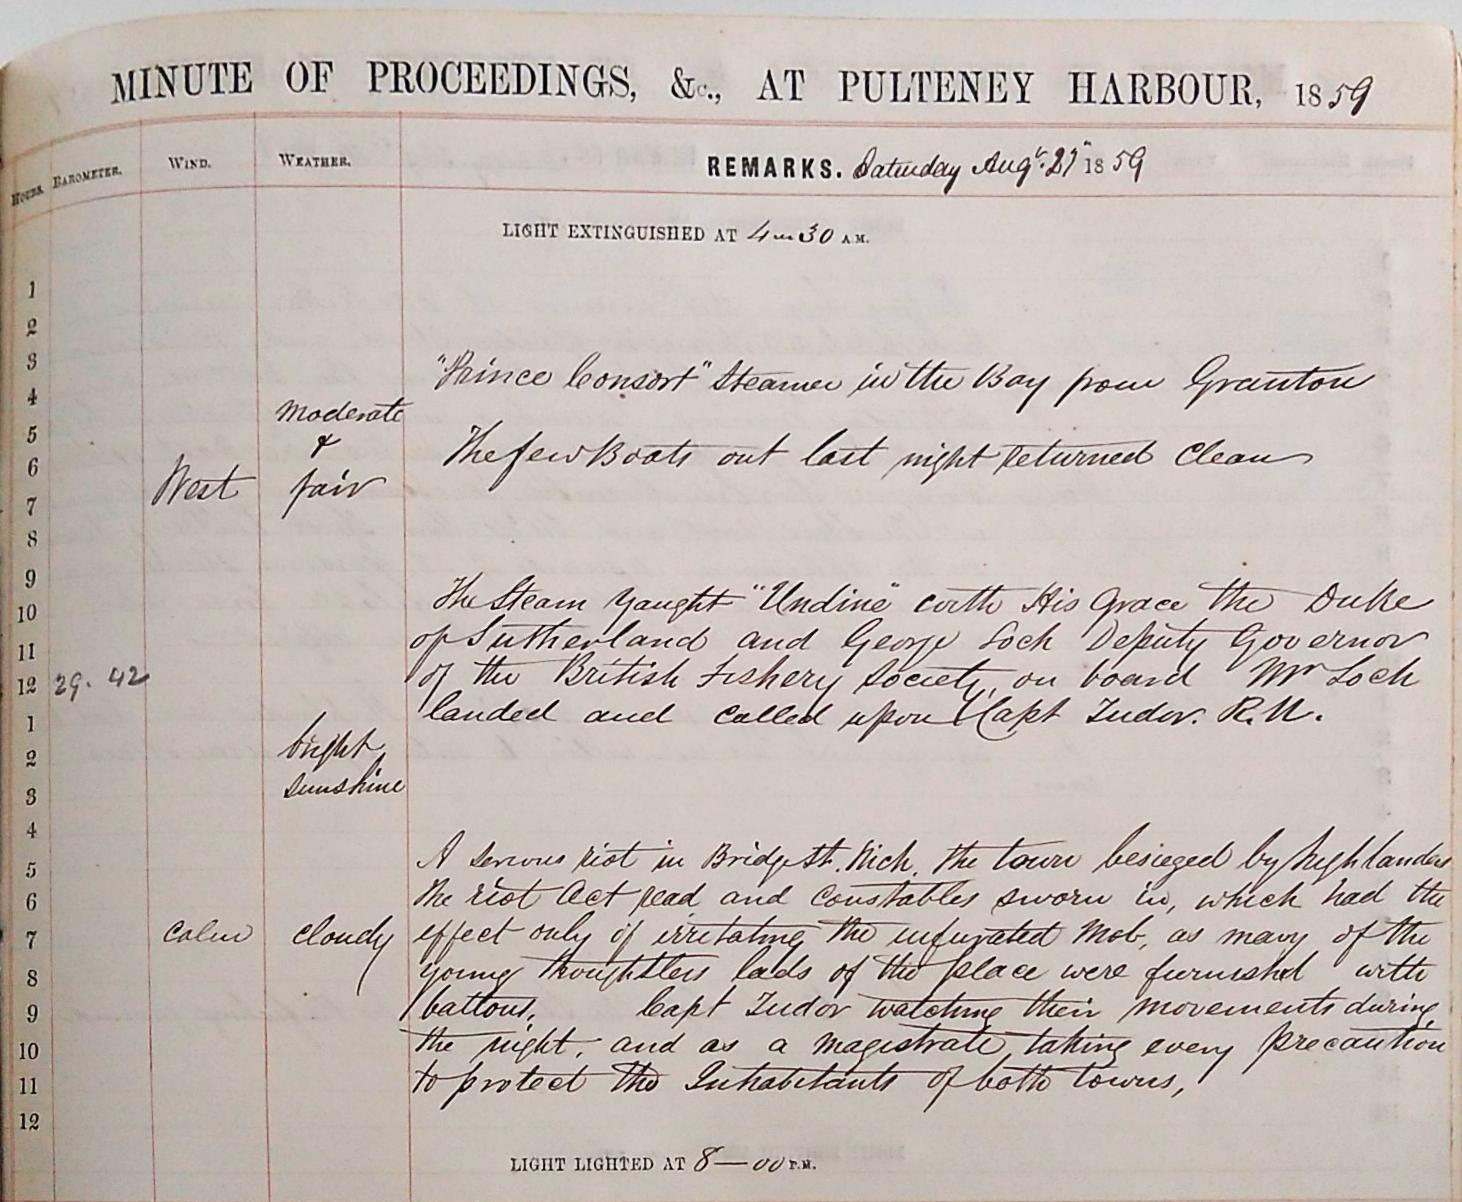 MINUTE OF PROCEEDINGS, &c., AT PULTENEY HARBOUR, 1859
HOURS. BAROMETER. WIND. WEATHER. REMARKS. Saturday Augt. 27th 1859
LIGHT EXTINGUISHED AT 4 - 30 A.M.
1
2
3 "Prince Consort" Steamer in the Bay from Granton
4 Moderate
5 & The few Boats out last night returned Clean
6 West fair
7
8
9
10 The Steam Yaught "Undine" with His Grace the Duke
11 of Sutherland and George Loch Deputy Governor
12 29. 42 of the British Fishery Society, on board Mr Loch
1 landed and called upon Capt Tudor. R.N.
2 bright
3 sunshine
4
5 A serious riot in Bridge St. Wick. the town besieged by highlanders
6 the riot Act read and Constables sworn in, which had the
7 Calm cloudy effect only of irritating the infurated Mob, as many of the
8 young thoughtless lads of the place were furnishd with
9 battons, Capt Tudor watching their movements during
10 the night. and as a magistrate, taking every precaution
11 to protect the Inhabitants of both towns,
12
LIGHT LIGHTED AT 8 — 00 P.M.